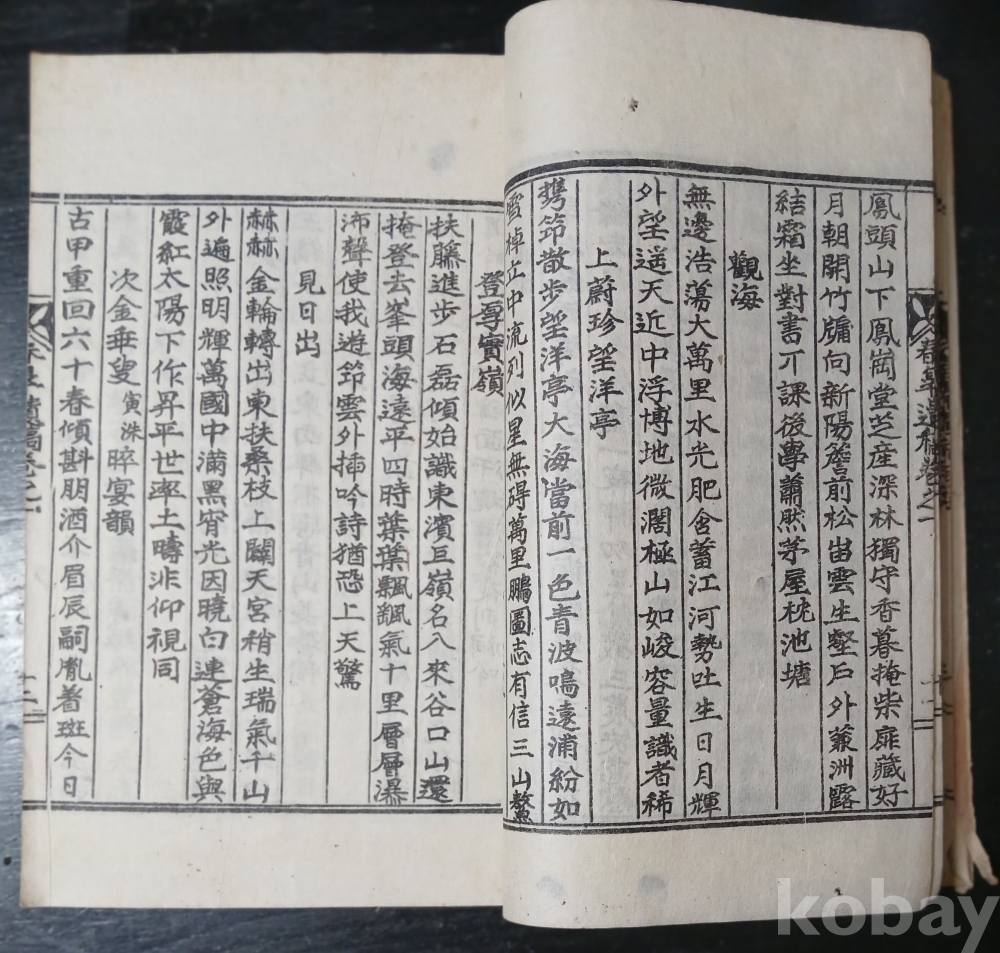 鳳頭山下鳳崗堂芝産深林獨守香暮掩柴扉藏好
月朝開竹牖向新陽簷前松出雲生壑戶外蒹洲露
結霜坐對書丌課後學蕭然茅屋枕池塘
觀海
無邊浩蕩大萬里水光肥含蓄江河勢吐生日月輝
外望遥天近中浮博地微濶極山如峻容量識者稀
上蔚珍望洋亭
携筇散步望洋亭大海當前一色青波鳴遠浦紛如
棹立中流列似星無碍萬里鵬圖志有信三山鰲
登尊實嶺
扶藤進步石磊傾始識東濱亘嶺名入來谷口山還
掩登去峯頭海遠平四時葉葉飄飄氣十里層層瀑
沛聲使我遊筇雲外揷吟詩猶恐上天驚
見日出
赫赫金輪轉出東扶桑枝上闢天宮稍生瑞氣千山
外遍照明輝萬國中滿黑宵光因曉白連蒼海色與
霞紅太陽下作昇平世率土疇非仰視同
次金垂叟寅洙晬宴韻
古甲重回六十春傾斟朋酒介眉辰嗣胤着斑今日
春 遺稿卷之一
十一
遺稿卷之一
十二
kobay